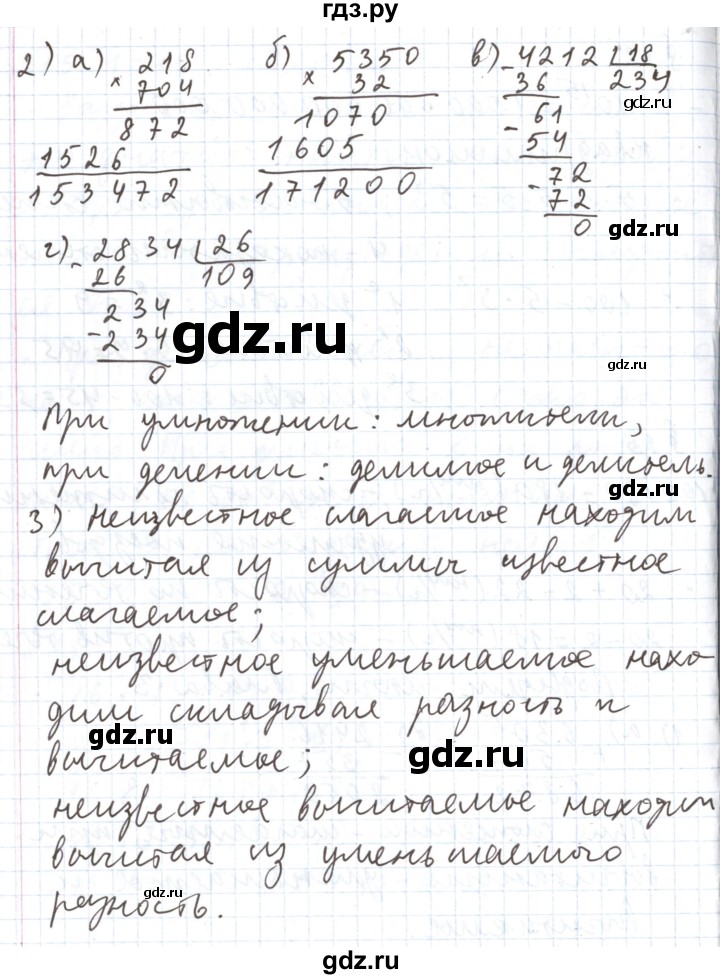 гдз.ру
2) а) 218 б) 5350 в) - 4212 18
× 704 × 32 36 234
872 1070 61
1526 1605 - 54
153472 171200 72
- 72
0
г) - 2834 26
26 109
234
- 234
0
При умножении: множители,
при делении: делимое и делитель.
3) Неизвестное слагаемое находим
вычитая из суммы известное
слагаемое;
неизвестное уменьшаемое нахо-
дим складывая разность и
вычитаемое;
неизвестное вычитаемое находим
вычитая из уменьшаемого
разность.
gdz.ru
gdz.ru
gdz.ru
gdz.ru
gdz.ru
gdz.ru
gdz.ru
gdz.ru
gdz.ru